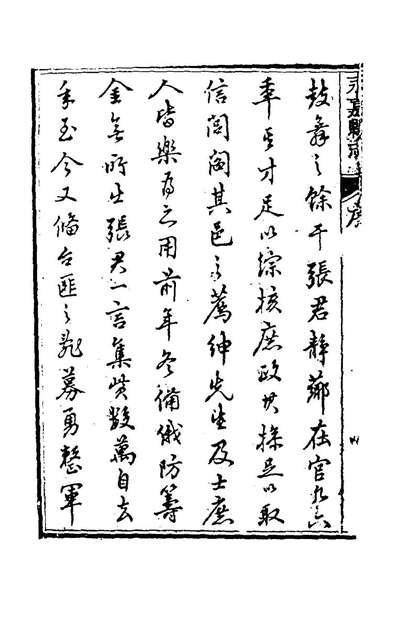 永嘉縣志
序
鼓舞之餘干張君靜薌在官凡六
年其才足以綜核庶政其操足以取
信閭閻其邑之薦紳先生及士庶
人皆樂爲之用前年冬備俄防籌
金無所出張君一言集貲數萬自去
年至今又偹台匪之亂募勇整軍